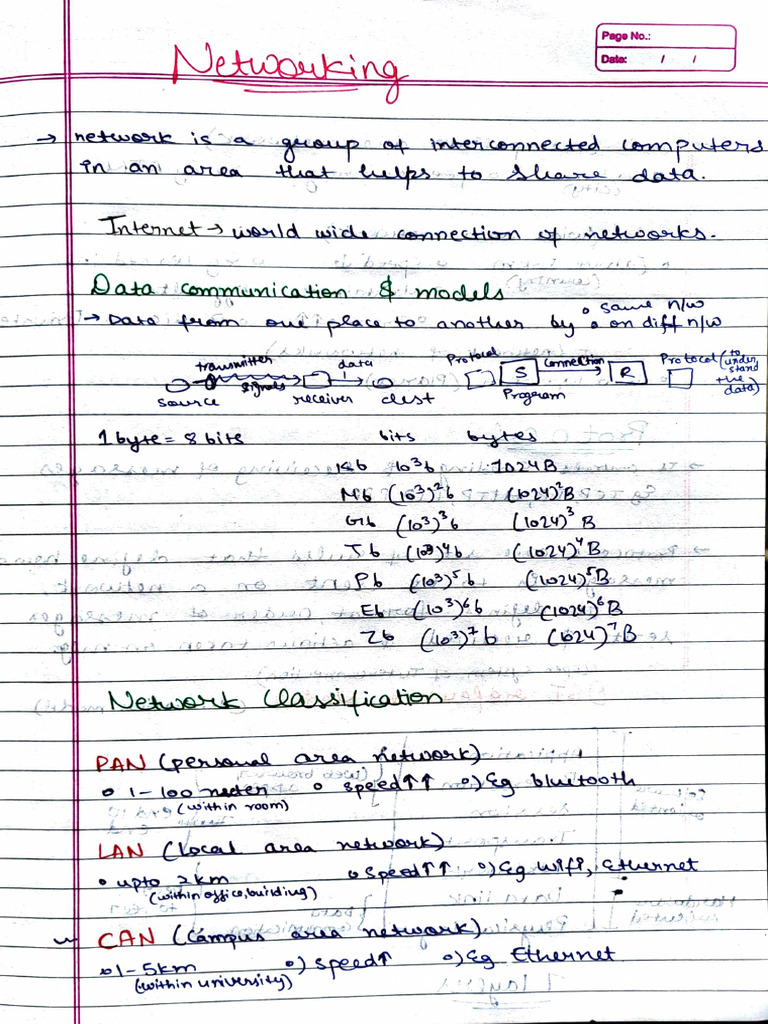 Page No.:
Date: / /
Networking
→ network is a group of interconnected computers
in an area that helps to share data.
Internet → world wide connection of networks.
Data communication & models
→ Data from one place to another by o same n/w
o on diff n/w
source transmitter signals receiver data dest
Protocol S Program connection R Protocol (to understand the data)
1 byte = 8 bits bits bytes
Kb 10³b 1024B
Mb (10³)²b (1024)²B
Gb (10³)³b (1024)³B
Tb (10³)⁴b (1024)⁴B
Pb (10³)⁵b (1024)⁵B
Eb (10³)⁶b (1024)⁶B
Zb (10³)⁷b (1024)⁷B
Network Classification
PAN (personal area network)
o 1-100 meter o speed↑↑ o) Eg bluetooth
(within room)
LAN (Local area network)
• upto 2km o speed↑↑ o) Eg Wifi, Ethernet
(within office, building)
CAN (Campus area network)
o 1-5km o) speed↑ o) Eg Ethernet
(within university)